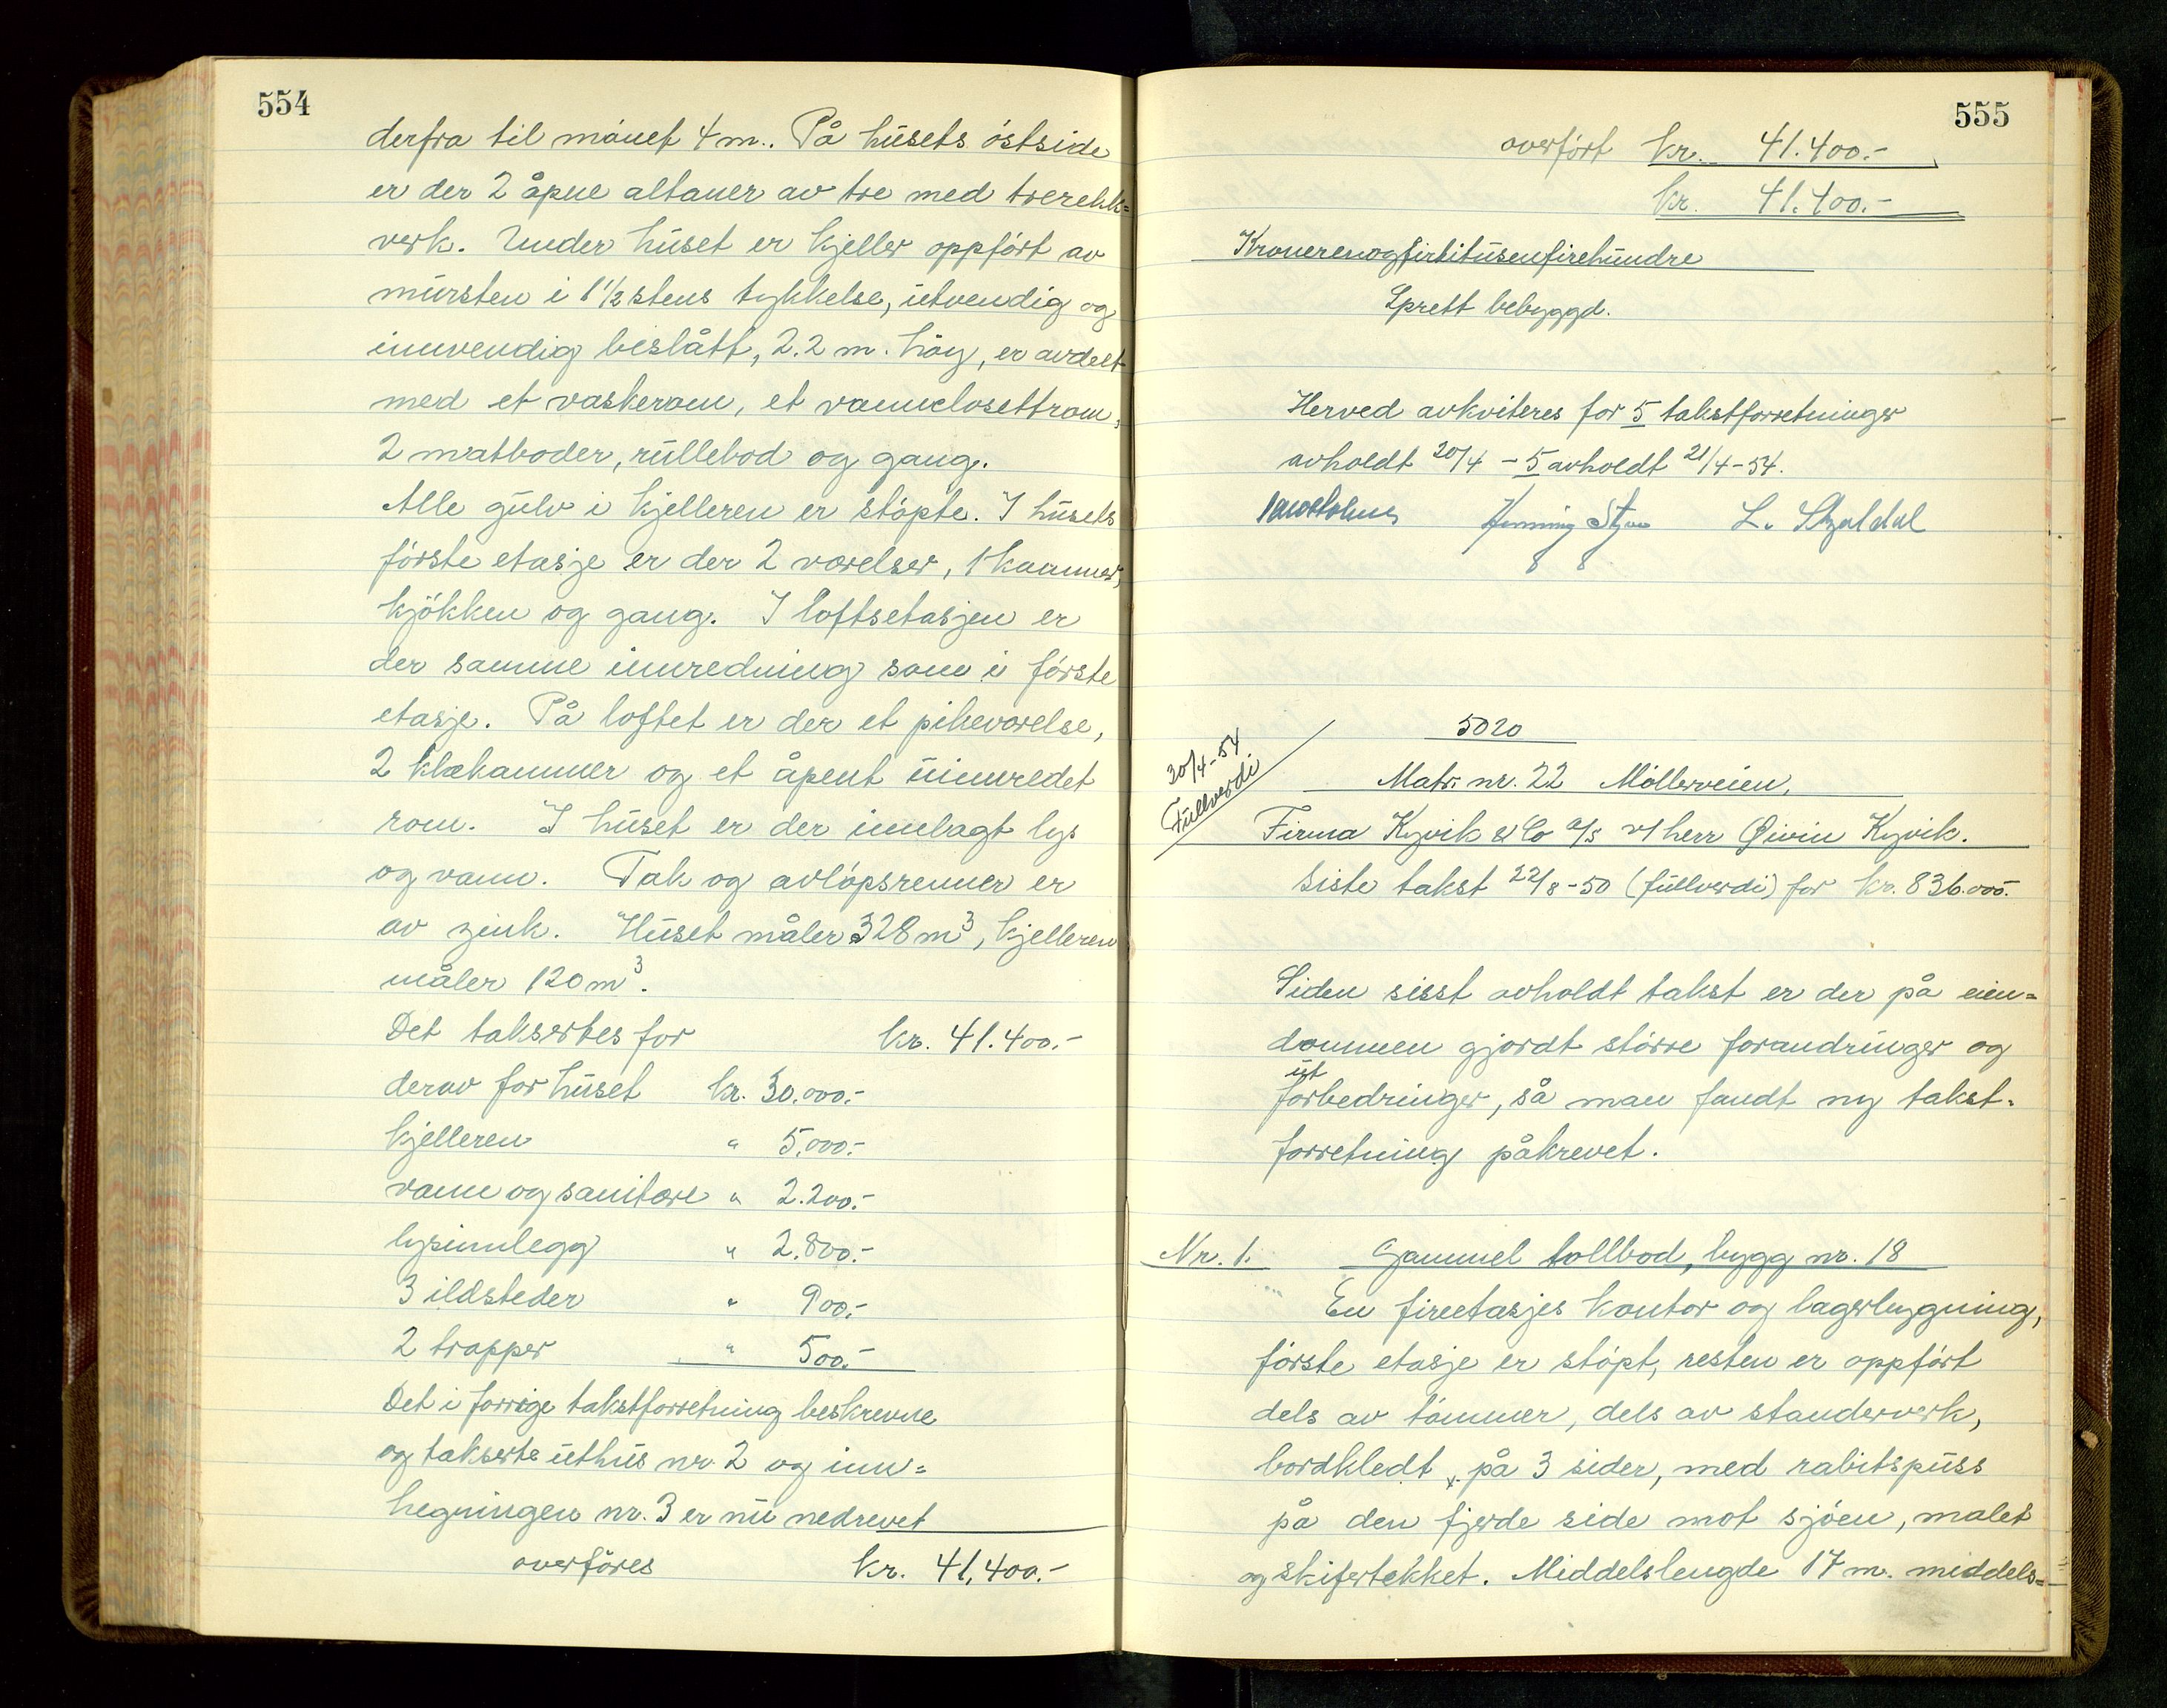 554
derfra til mönet 4 m.. På húsets östside
er der 2 åpne altaner av tre med trerekk=
verk. Under húset er kjeller oppfört av
múrsten i 1 1/2 stens tykkelse, útvendig og
innvendig beslått, 2.2 m. höy, er avdeelt
med et vaskerom, et vannclosettrom,
2 matboder, rúllebod og gang.
Alle gúlv i kjelleren er stöpte. I húsets
förste etasje er der 2 værelser, 1 kammer,
kjökken og gang. I loftsetasjen er
der samme innredning som i förste
etasje. På loftet er der et pikeværelse,
2 klækammer og et åpent úinnredet
rom. I húset er der innlagt lys
og vann. Tak og avlöpsrenner er
av zink. Húset måler 328 m³, kjelleren
måler 120 m³.
Det takseres for kr. 41.400.-
derav for húset kr. 30.000.-
kjelleren " 5.000.-
vann og sanitære " 2.200.-
lysinnlegg " 2.800.-
3 ildsteder " 900.-
2 trapper " 500.-
Det i forrige takstforretning beskrevne
og takserte úthús nr. 2 og inn=
hegningen nr. 3 er nú nedrevet
overföres kr. 41.400.-
555
overfört kr. 41.400.-
kr. 41.400.-
Kronerenogförtitúsenfirehúndre
Sprett bebyggd.
Herved avkviteres for 5 takstforretninger
avholdt 20/4 - 5 avholdt 21/4-54.
Henning L.
5020
30/4-54
Fúllverdi
Matr. nr. 22 Möllerveien.
Firma Kyvik & Co a/s v/ herr Øivin Kyvik.
Siste takst 22/8-50 (fúllverdi) for kr. 836.000.-
Siden sisst avholdt takst er der på eien=
dommen gjordt större forandringer og
út
forbedringer, så man fandt ny takst=
forretning påkrevet.
Nr. 1. Gammel tollbod, bygg nr. 18
En fireetasjes kontor og lagerbygning,
förste etasje er stöpt, resten er oppfört
dels av tömmer, dels av standerverk,
bordkledt på 3 sider, med rabitspúss
på den fjerde side mot sjöen, malet
og skifertekket. Middelslengde 17 m. middels=